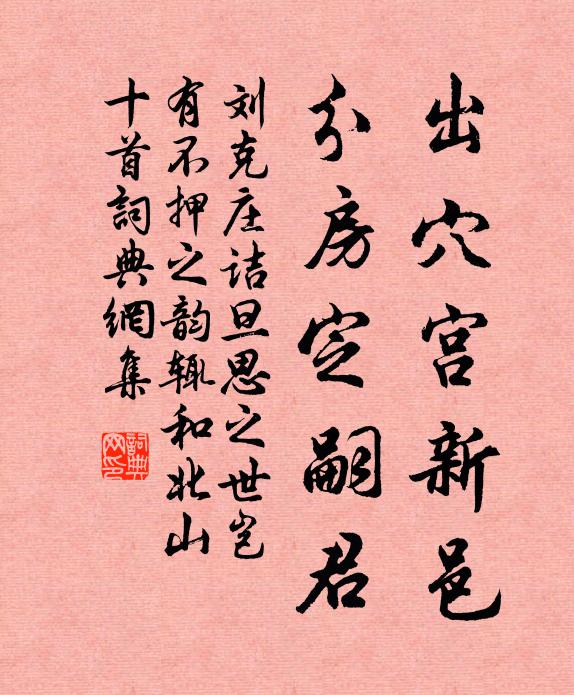 出穴宫新邑
分房定嗣君
刘克庄诘旦思之世岂
有不押之韵辄和北山
十首詞典網集
詞典网印